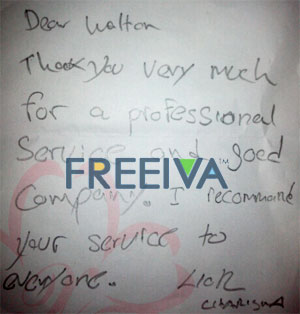 Dear Walton
Thank you very much
for a professional
Service and good
FREEIVA™
Company. I recommand
your service to
everyone. LIOR
CHARISMA